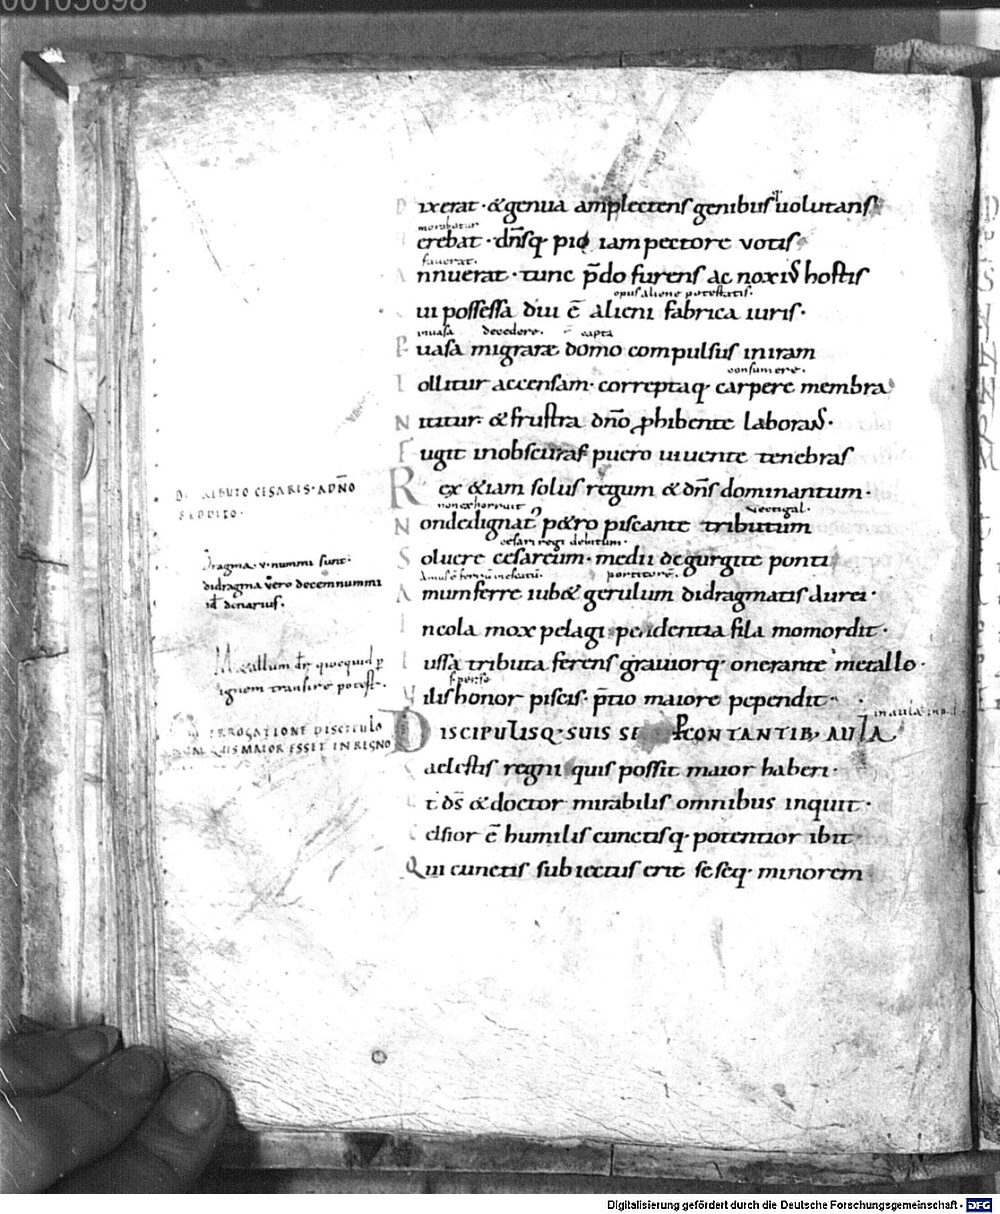 00105898
Dixerat· &genua amplectens genibusq; uolutans
morabatur
erebat· dn̄sq· pio iam pectore votis
fauerat.
Annuerat· tunc p̄do furens ac noxiꝰ hostis
opus aliene potestatis·
ui possessa diu ē alieni fabrica iuris·
inuasa decedere· ē capta
Puasa migrare domo compulsus iniram
consumere·
Tollitur accensam· correptaq· carpere membra
Nititur· & frustra dn̄o ꝓhibente laborans·
Fugit inobscuras puero uiuente tenebras
DE TRIBUTO CESARIS· A DN̄O
REDDITO·
Rex &iam solus regum & dn̄s dominantum·
non exhorruit vectigal·
Nondedignatꝰ p&ro piscante tributum
cesari regi debitum·
Soluere cesareum· medii degurgite ponti
Dragma v· nummi sunt·
didragma vero decemnummi
id denarius·
portitore·
Amumferre iub& gerulum didragmatis aurei·
Incola mox pelagi pendentia fila momordit·
Metallum dr̄ quicquid p
ignem transire potest·
Iussa tributa ferens grauiorq· onerante metallo·
Vilis honor piscis· p̄tio maiore pependit·
INTERROGATIONE DISCIPULO
QUIS MAIOR ESSET IN REGNO
in aula
DISCIPULISQ· SUIS SE PCONTANTIB; AULA
aelestis regni quis possit maior haberi·
t ds̄ & doctor mirabilis omnibus inquit·
Celsior ē humilis cunctisq· potentior ibit
Qui cunctis subiectus erit seseq· minorem
Digitalisierung gefördert durch die Deutsche Forschungsgemeinschaft · DFG